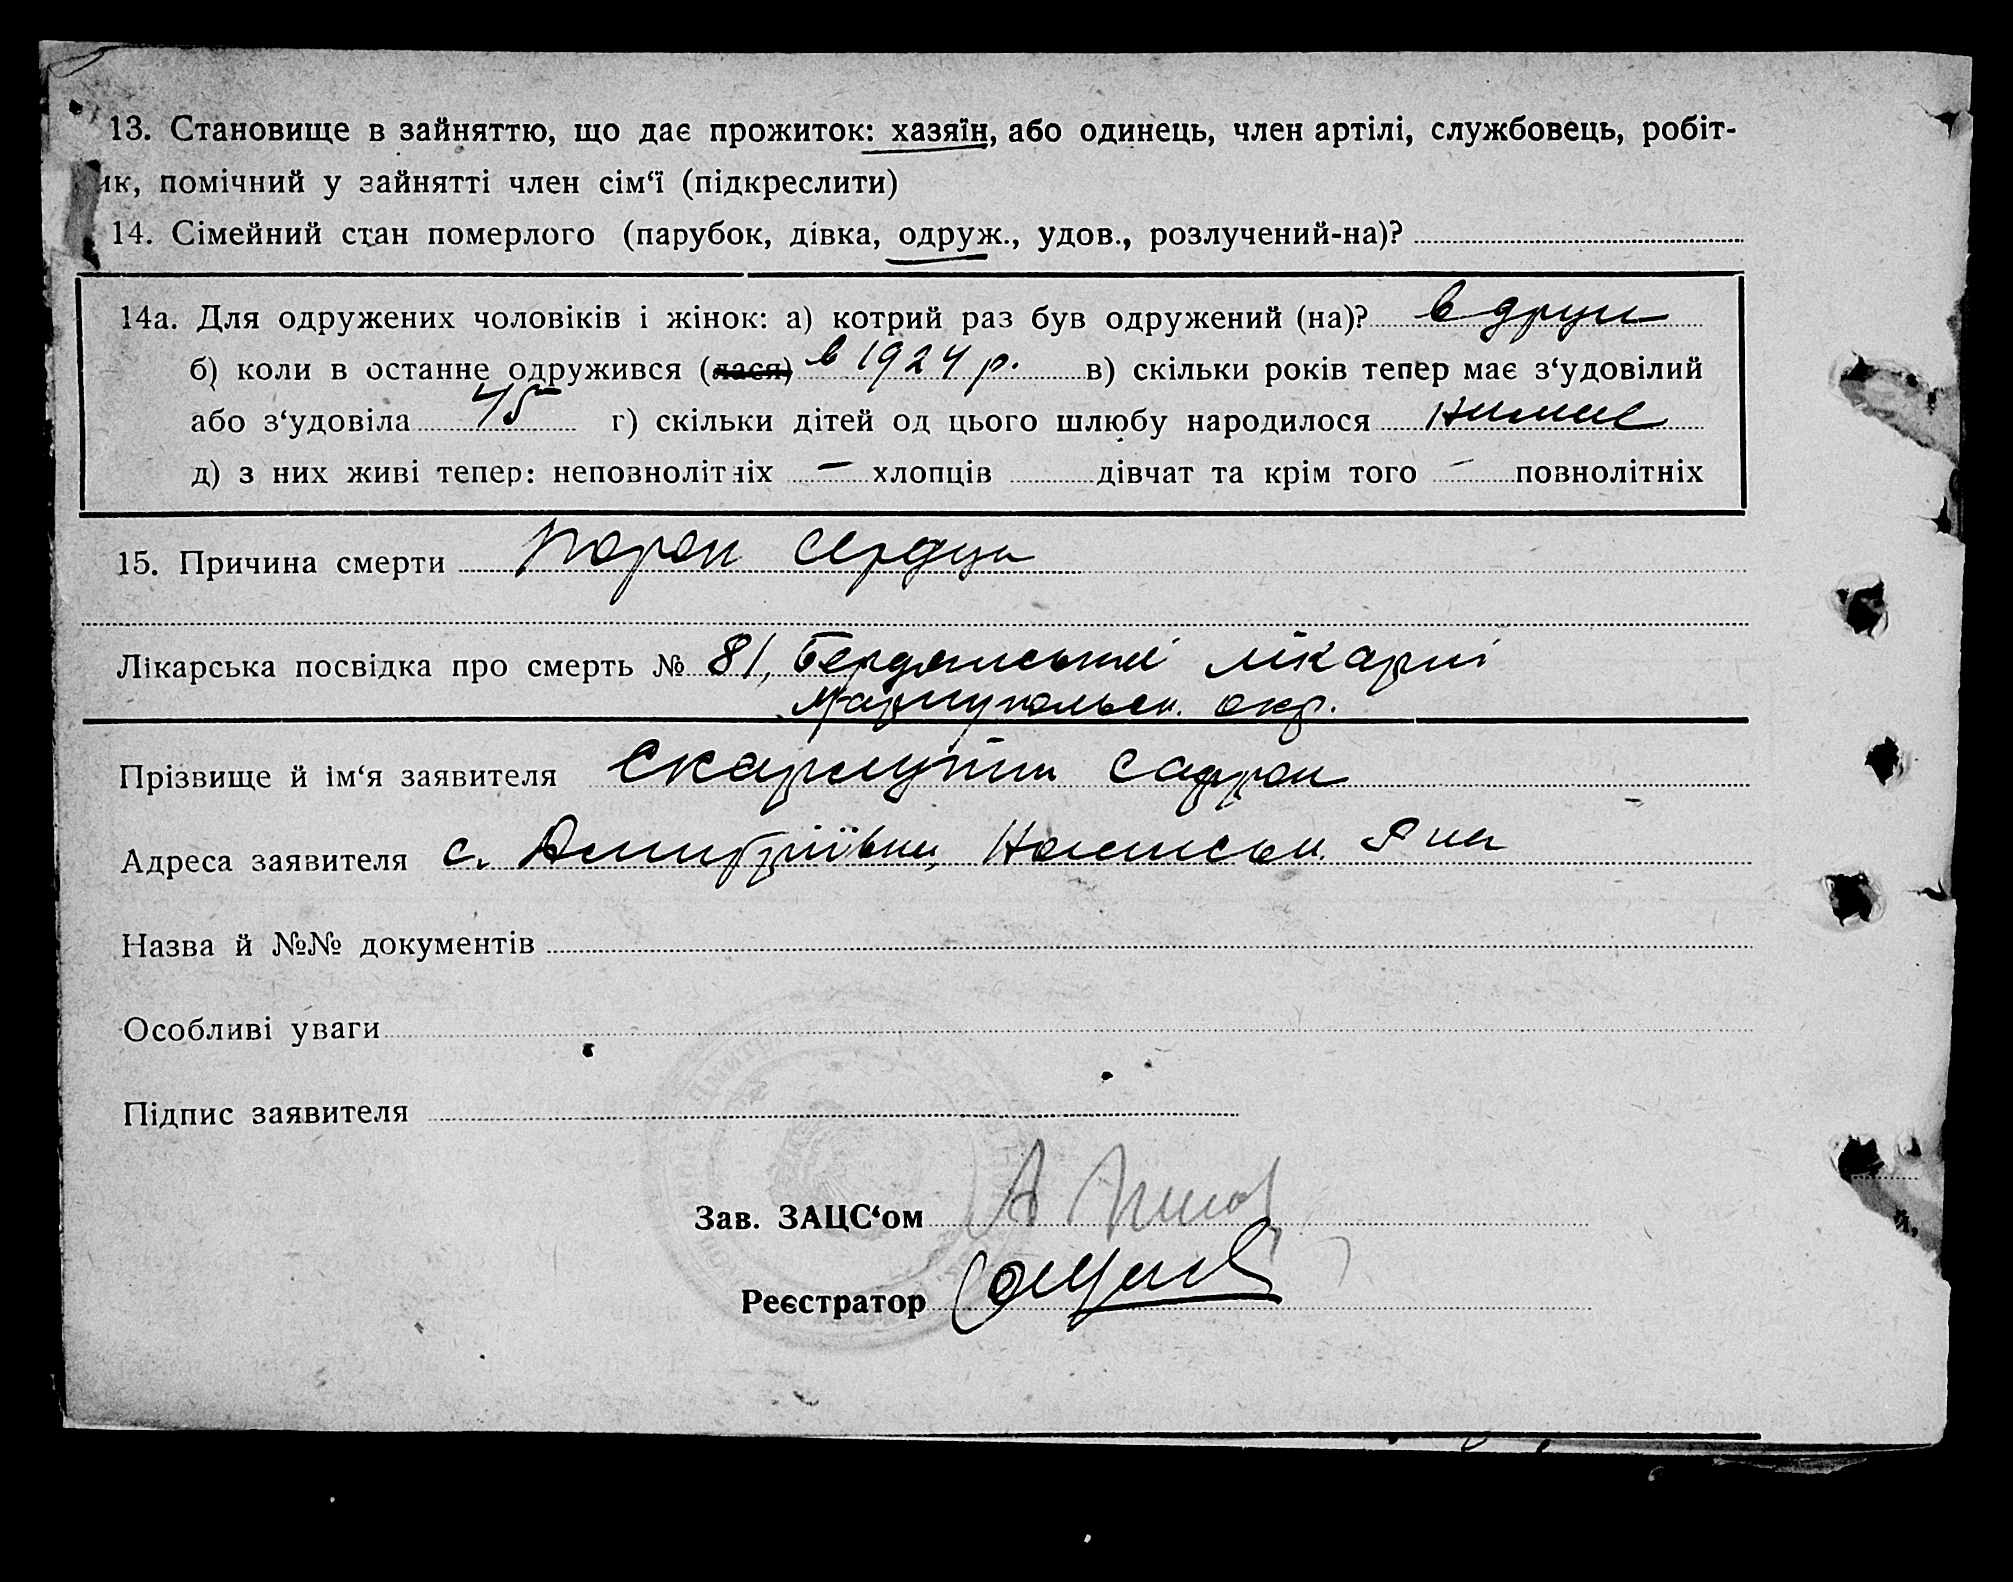 13. Становище в зайняттю, що дає прожиток: хазяїн, або одинець, член артілі, службовець, робіт-
ик, помічний у зайнятті член сім‘ї (підкреслити)
14. Сімейний стан померлого (парубок, дівка, одруж., удов., розлучений-на)?
14а. Для одружених чоловіків і жінок: а) котрий раз був одружений (на)? в други
б) коли в останне одружився (лася) в 1924 р. в) скільки років тепер має з‘удовілий
або з‘удовіла 45 г) скільки дітей од цього шлюбу народилося
д) з них живі тепер: неповнолітніх — хлопців дівчат та крім того — повнолітніх
15. Причина смерти порок сердця
Лікарська посвідка про смерть № 81, Бердянської лікарні
Маріупольськ. окр.
Прізвище й ім‘я заявителя
Адреса заявителя с. Дмитріївки,
Назва й №№ документів
Особливі уваги
Підпис заявителя
Зав. ЗАЦС‘ом
Реєстратор